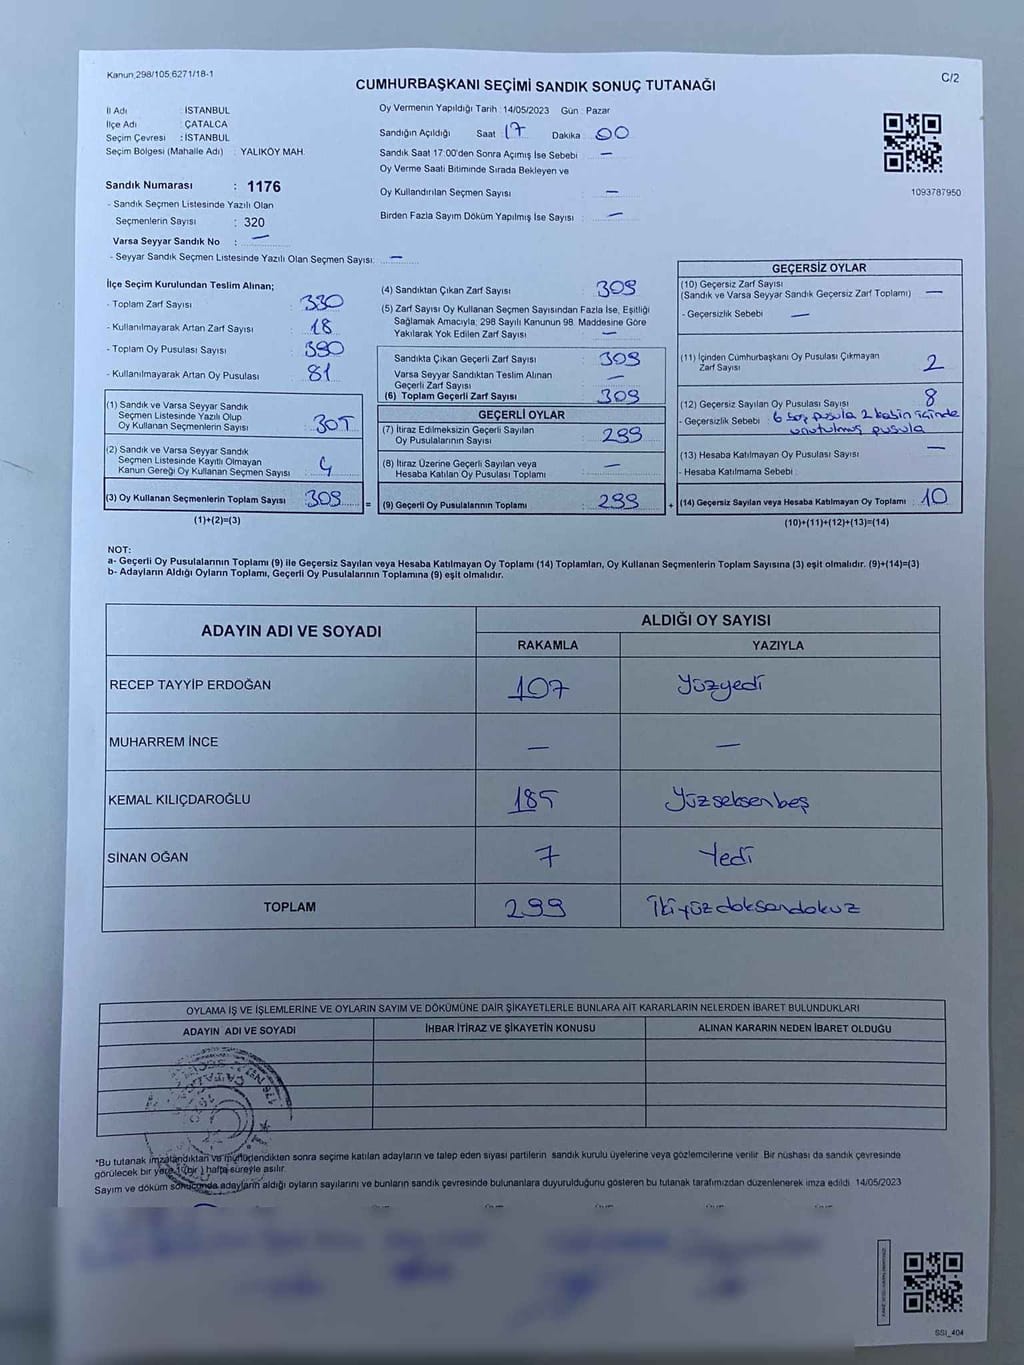 Kanun,298/105,6271/18-1
C/2
CUMHURBAŞKANI SEÇİMİ SANDIK SONUÇ TUTANAĞI
İl Adı : İSTANBUL
İlçe Adı : ÇATALCA
Seçim Çevresi : İSTANBUL
Seçim Bölgesi (Mahalle Adı) : YALIKÖY MAH.
Sandık Numarası : 1176
- Sandık Seçmen Listesinde Yazılı Olan
Seçmenlerin Sayısı : 320
Varsa Seyyar Sandık No : —
- Seyyar Sandık Seçmen Listesinde Yazılı Olan Seçmen Sayısı: —
Oy Vermenin Yapıldığı Tarih : 14/05/2023 Gün : Pazar
Sandığın Açıldığı Saat 17 Dakika 00
Sandık Saat 17:00'den Sonra Açımış İse Sebebi : —
Oy Verme Saati Bitiminde Sırada Bekleyen ve
Oy Kullandırılan Seçmen Sayısı : —
Birden Fazla Sayım Döküm Yapılmış İse Sayısı : —
1093787950
İlçe Seçim Kurulundan Teslim Alınan;
- Toplam Zarf Sayısı : 330
- Kullanılmayarak Artan Zarf Sayısı : 18
- Toplam Oy Pusulası Sayısı : 390
- Kullanılmayarak Artan Oy Pusulası : 81
(1) Sandık ve Varsa Seyyar Sandık
Seçmen Listesinde Yazılı Olup
Oy Kullanan Seçmenlerin Sayısı : 305
(2) Sandık ve Varsa Seyyar Sandık
Seçmen Listesinde Kayıtlı Olmayan
Kanun Gereği Oy Kullanan Seçmen Sayısı : 4
(3) Oy Kullanan Seçmenlerin Toplam Sayısı : 309
(1)+(2)=(3)
(4) Sandıktan Çıkan Zarf Sayısı : 309
(5) Zarf Sayısı Oy Kullanan Seçmen Sayısından Fazla İse, Eşitliği
Sağlamak Amacıyla, 298 Sayılı Kanunun 98. Maddesine Göre
Yakılarak Yok Edilen Zarf Sayısı : —
Sandıkta Çıkan Geçerli Zarf Sayısı : 309
Varsa Seyyar Sandıktan Teslim Alınan
Geçerli Zarf Sayısı : —
(6) Toplam Geçerli Zarf Sayısı : 309
GEÇERLİ OYLAR
(7) İtiraz Edilmeksizin Geçerli Sayılan
Oy Pusulalarının Sayısı : 299
(8) İtiraz Üzerine Geçerli Sayılan veya
Hesaba Katılan Oy Pusulası Toplamı : —
= (9) Geçerli Oy Pusulalarının Toplamı : 299
GEÇERSİZ OYLAR
(10) Geçersiz Zarf Sayısı
(Sandık ve Varsa Seyyar Sandık Geçersiz Zarf Toplamı) : —
- Geçersizlik Sebebi : —
(11) İçinden Cumhurbaşkanı Oy Pusulası Çıkmayan
Zarf Sayısı : 2
(12) Geçersiz Sayılan Oy Pusulası Sayısı : 8
- Geçersizlik Sebebi : 6 boş pusula 2 kabin içinde
unutulmuş pusula
(13) Hesaba Katılmayan Oy Pusulası Sayısı : —
- Hesaba Katılmama Sebebi :
+ (14) Geçersiz Sayılan veya Hesaba Katılmayan Oy Toplamı : 10
(10)+(11)+(12)+(13)=(14)
NOT:
a- Geçerli Oy Pusulalarının Toplamı (9) ile Geçersiz Sayılan veya Hesaba Katılmayan Oy Toplamı (14) Toplamları, Oy Kullanan Seçmenlerin Toplam Sayısına (3) eşit olmalıdır. (9)+(14)=(3)
b- Adayların Aldığı Oyların Toplamı, Geçerli Oy Pusulalarının Toplamına (9) eşit olmalıdır.
ADAYIN ADI VE SOYADI
ALDIĞI OY SAYISI
RAKAMLA YAZIYLA
RECEP TAYYİP ERDOĞAN 107 Yüzyedi
MUHARREM İNCE — —
KEMAL KILIÇDAROĞLU 185 Yüzseksenbeş
SİNAN OĞAN 7 Yedi
TOPLAM 299 İkiyüzdoksandokuz
OYLAMA İŞ VE İŞLEMLERİNE VE OYLARIN SAYIM VE DÖKÜMÜNE DAİR ŞİKAYETLERLE BUNLARA AİT KARARLARIN NELERDEN İBARET BULUNDUKLARI
ADAYIN ADI VE SOYADI İHBAR İTİRAZ VE ŞİKAYETİN KONUSU ALINAN KARARIN NEDEN İBARET OLDUĞU
*Bu tutanak imzalandıktan ve mühürlendikten sonra seçime katılan adayların ve talep eden siyasi partilerin sandık kurulu üyelerine veya gözlemcilerine verilir. Bir nüshası da sandık çevresinde
görülecek bir yere 1 (bir) hafta süreyle asılır.
Sayım ve döküm sonucunda adayların aldığı oyların sayılarını ve bunların sandık çevresinde bulunanlara duyurulduğunu gösteren bu tutanak tarafımızdan düzenlenerek imza edildi. 14/05/2023
SSI_404